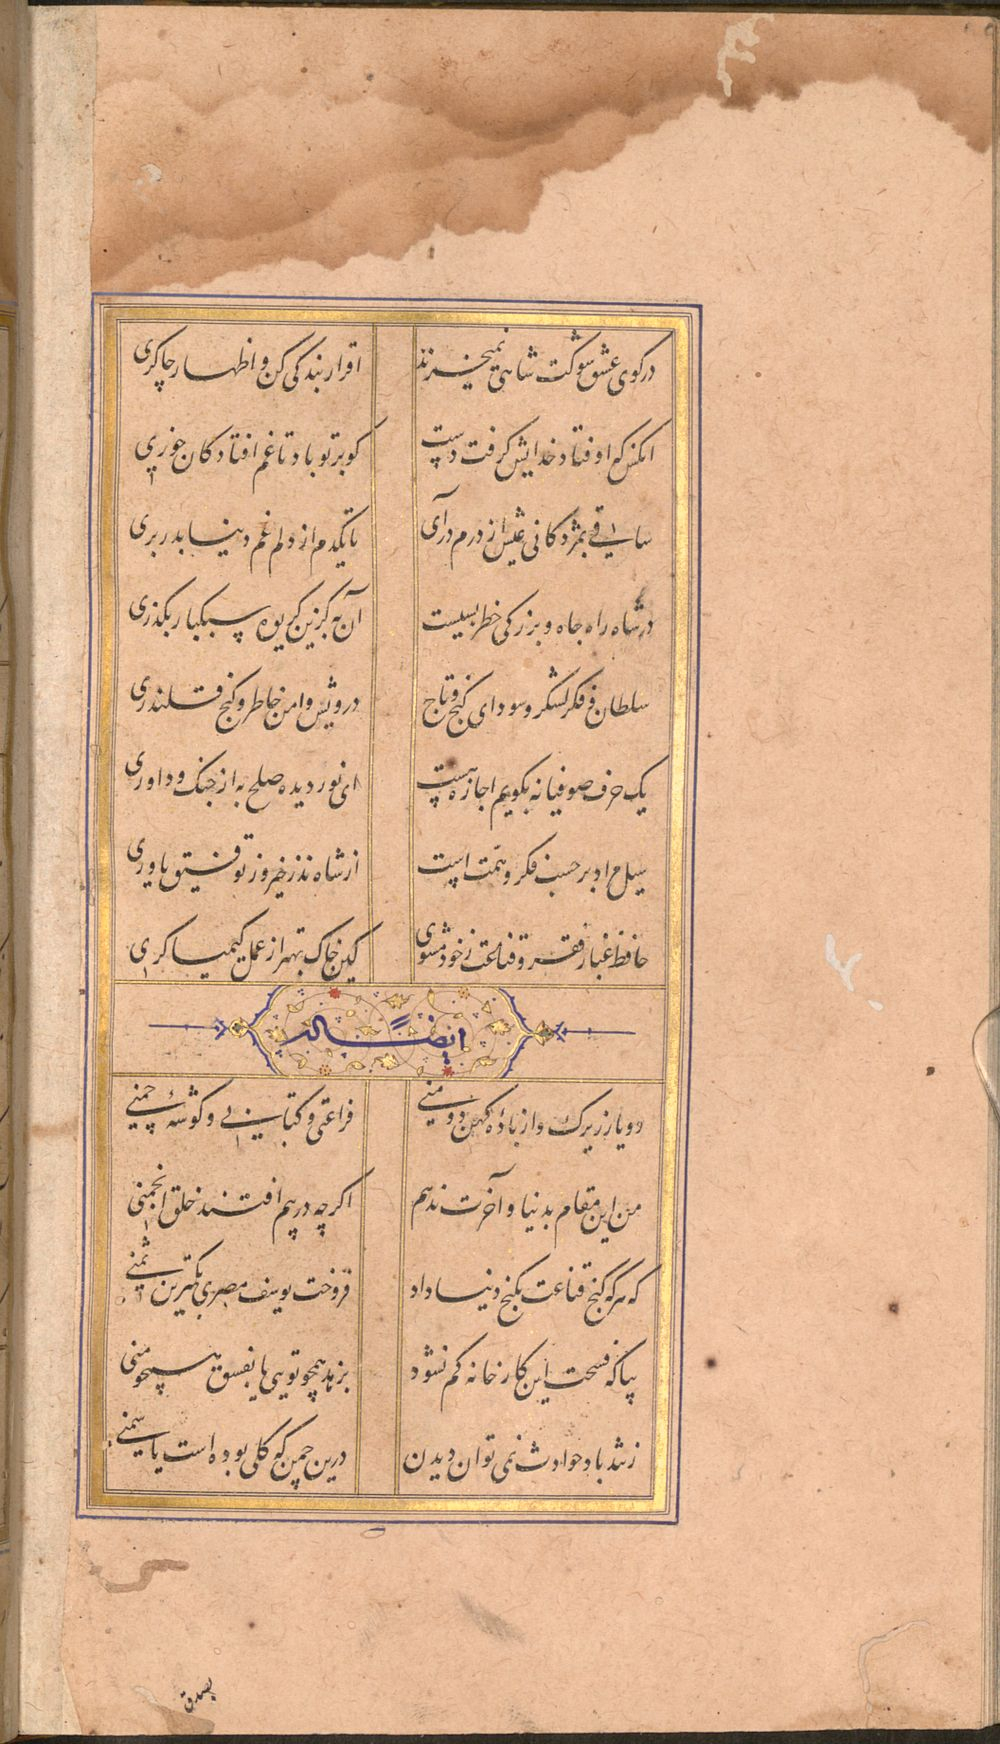 در کوی عشق شوکت شاهی نمیخرند
اقرار بندگی کن و اظهار چاکری
انکس که اوفتاد خدایش گرفت دست
گو بر تو باد تا غم افتادگان خوری
ساقی بمژدگانی عیش از درم درآی
تا یکدم از دلم غم دنیا بدر بری
در شاه راه جاه و بزرگی خطر بسیست
آن به کزین گریوه سبکبار بگذری
سلطان و فکر لشکر و سودای گنج و تاج
درویش و امن خاطر و کنج قلندری
یک حرف صوفیانه بگویم اجازه هست
ای نور دیده صلح به از جنگ و داوری
نیل مراد بر حسب فکر و همت است
از شاه نذر خیر و ز توفیق یاوری
حافظ غبار فقر و قناعت ز رخ مشوی
کین خاک بهتر از عمل کیمیاگری
ایضا له
دو یار زیرک و از باده کهن دو منی
فراغتی و کتابی و گوشه چمنی
من این مقام بدنیا و آخرت ندهم
اگر چه در پیم افتند خلق انجمنی
که هر که گنج قناعت بگنج دنیا داد
فروخت یوسف مصری بکمترین ثمنی
بیا که فسحت این کارخانه کم نشود
بزهد همچو تویی یا بفسق همچو منی
ز تند باد حوادث نمی توان دیدن
درین چمن که گلی بوده است یا سمنی
بصدق